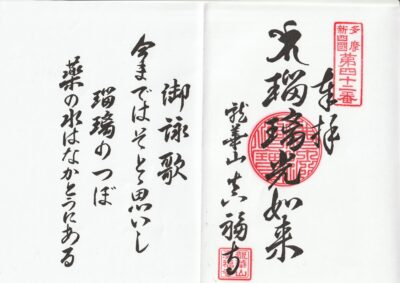 多摩
新四國
第四十二番
奉拝
瑠璃光如来
龍華山 真福寺
御詠歌
今まではそとゝ思いし
瑠璃のつぼ
薬の水はなかとうにある